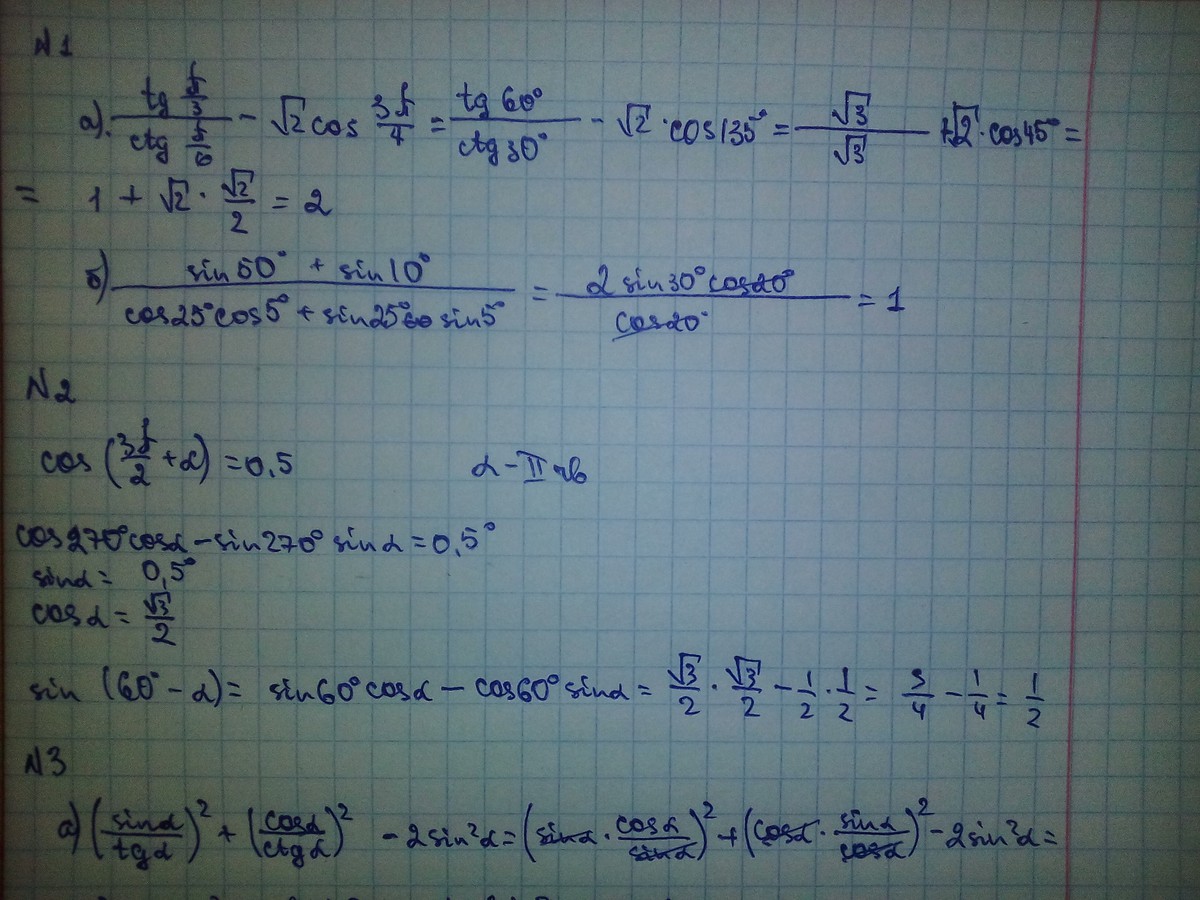 N1
а) tg π/3 / ctg π/6 - √2 cos 3π/4 = tg 60° / ctg 30° - √2 · cos 135° = √3 / √3 + √2 · cos 45° =
= 1 + √2 · √2/2 = 2
б) sin 50° + sin 10° / cos 25° cos 5° + sin 25° sin 5° = 2 sin 30° cos 20° / cos 20° = 1
N2
cos (3π/2 + α) = 0,5 α - II чв
cos 270° cos α - sin 270° sin α = 0,5°
sin α = 0,5°
cos α = √3/2
sin (60° - α) = sin 60° cos α - cos 60° sin α = √3/2 · √3/2 - 1/2 · 1/2 = 3/4 - 1/4 = 1/2
N3
а) (sin α / tg α)² + (cos α / ctg α)² - 2 sin² α = (sin α · cos α / sin α)² + (cos α · sin α / cos α)² - 2 sin² α =